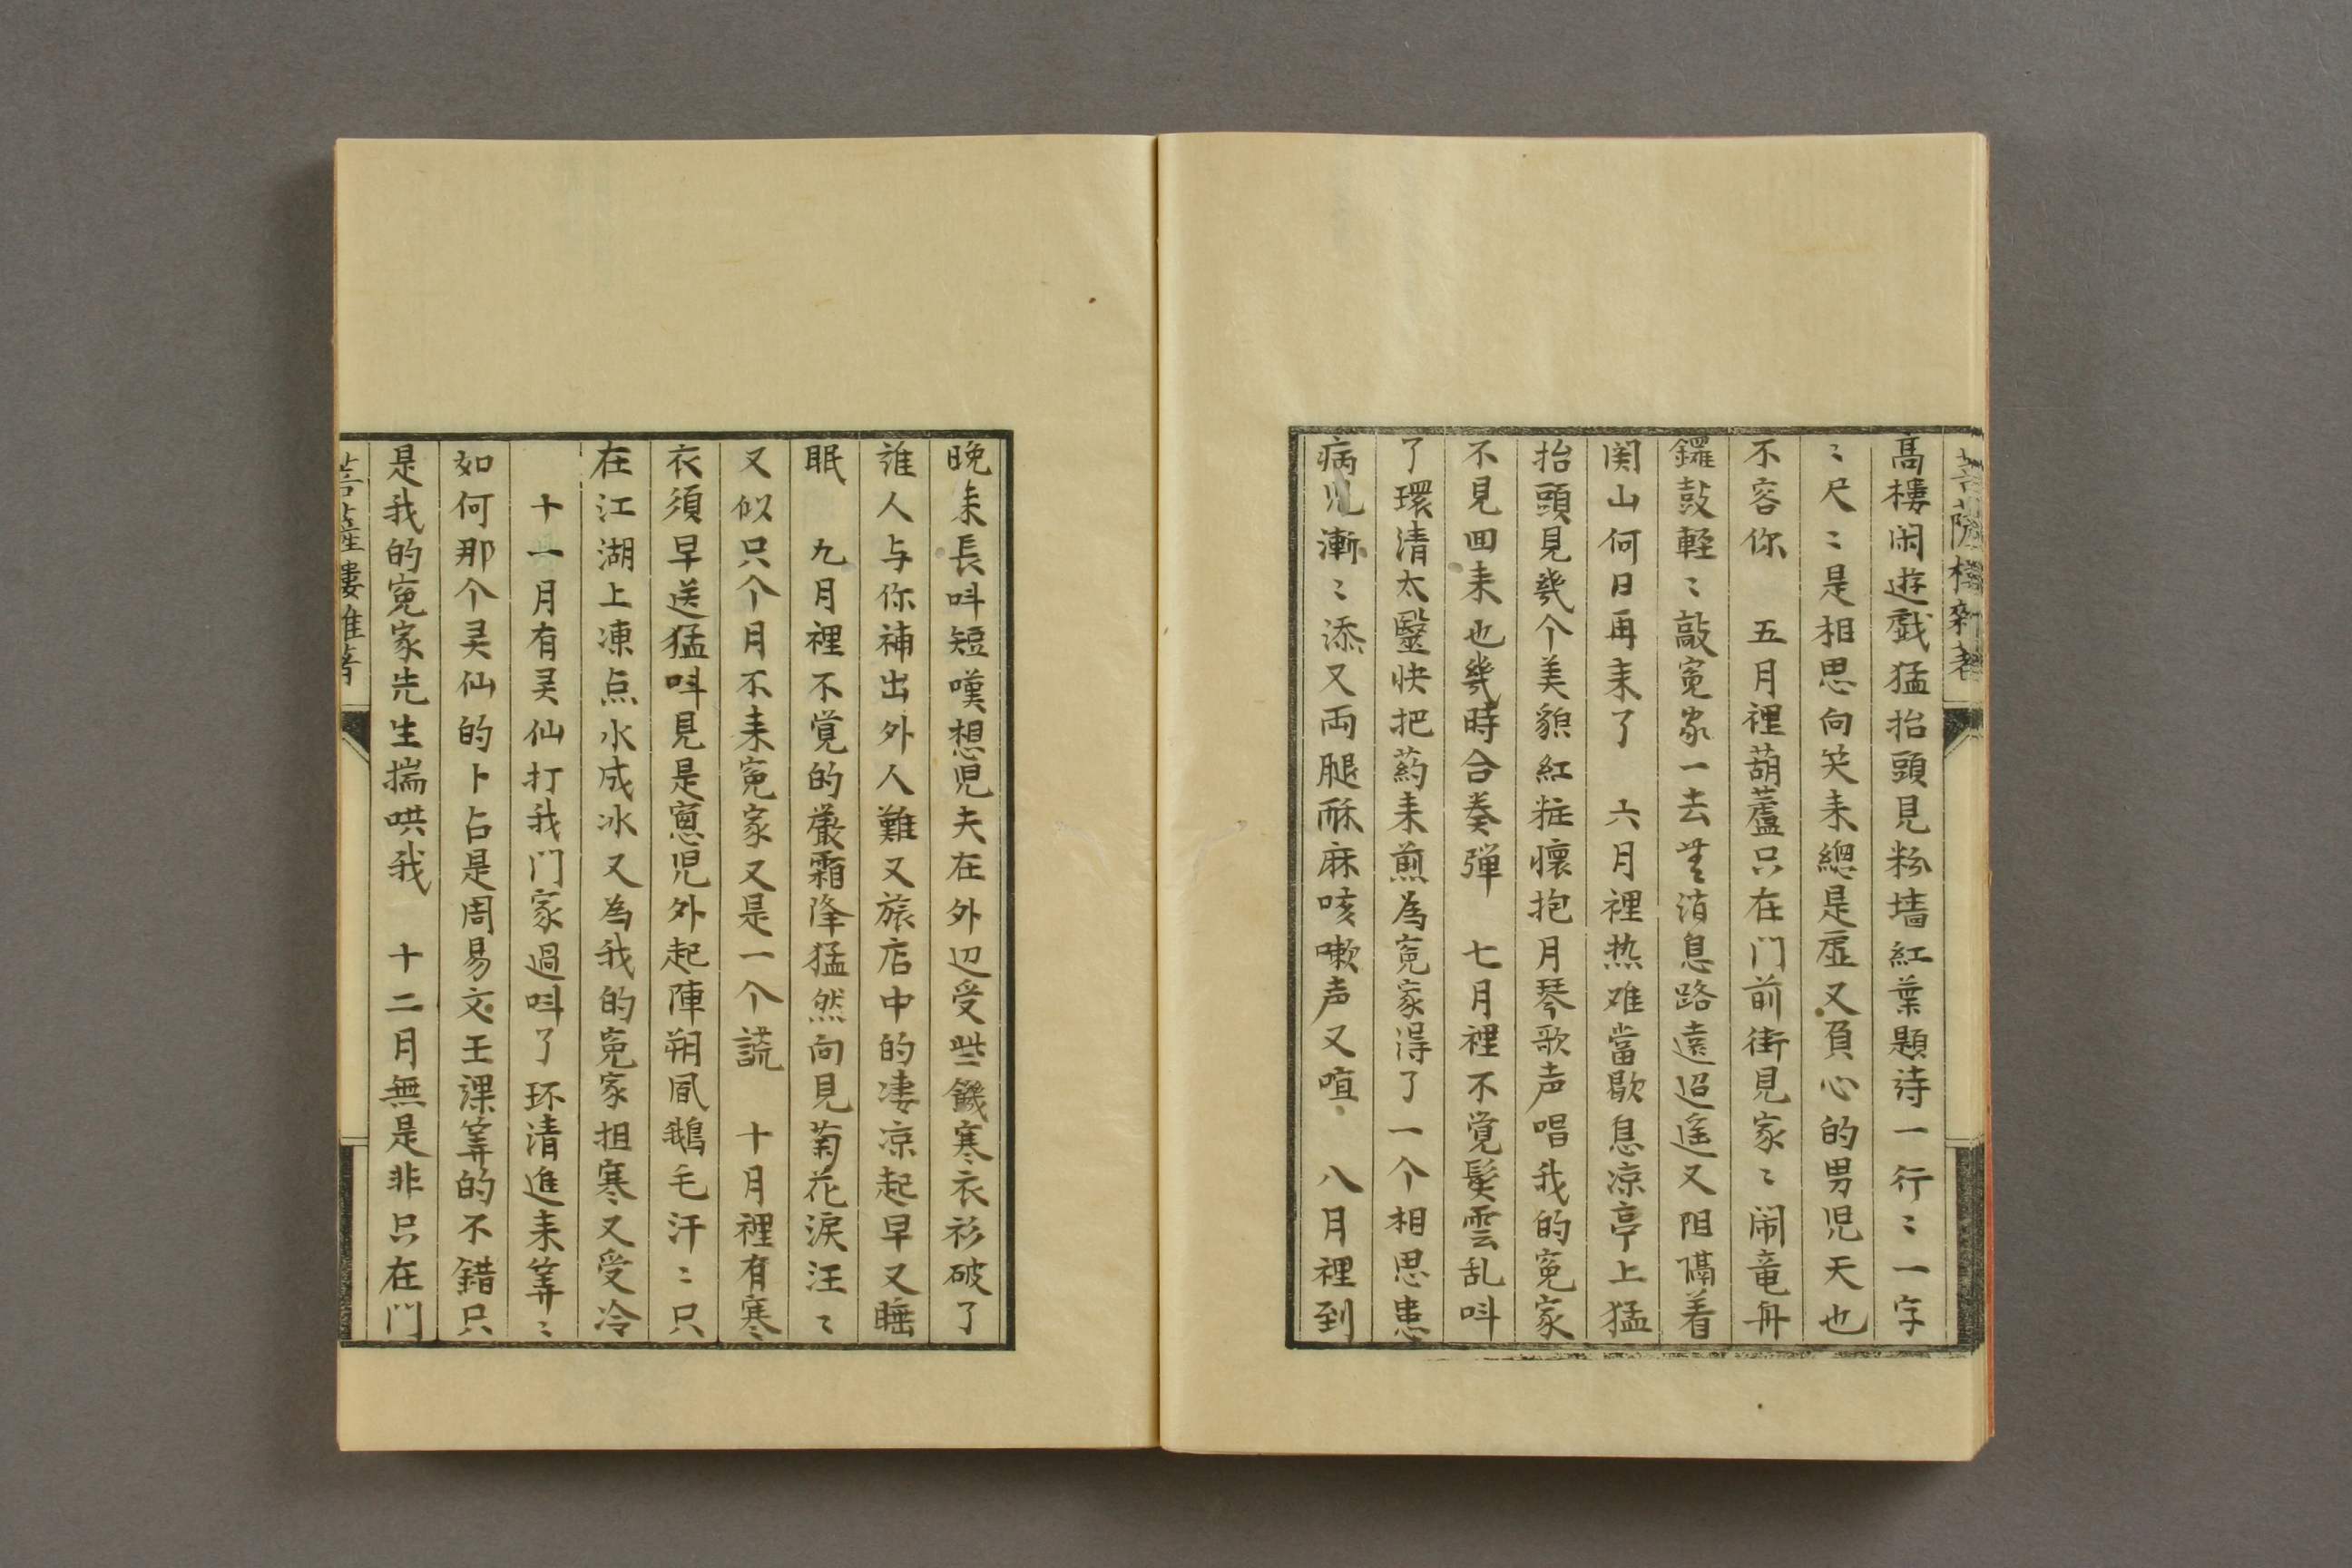 高樓闲遊戲猛抬頭見粉墙紅葉題诗一行〻一字
〻尺〻是相思向笑耒總是虛又負心的男児天也
不容你　五月裡葫蘆只在门前街見家〻闹竜舟
鑼鼓輕〻敲寃家一去𠦄消息路遠迢遥又阻隔着
関山何日再耒了　六月裡热难當歇息凉亭上猛
抬頭見幾个美貌紅粧懷抱月琴歌声唱我的寃家
不見回耒也幾時合奏彈　七月裡不覚髮雲乱呌
了環清太醫快把葯耒煎為寃家淂了一个相思患
病児漸〻添又両腿酥麻咳嗽声又喧　八月裡到
晚耒長呌短嘆想児夫在外辺受些饑寒衣衫破了
誰人与你補出外人難又旅店中的凄凉起早又睡
眠　九月裡不覚的嚴霜降猛然向見菊花淚汪〻
又似只个月不耒寃家又是一个謊　十月裡有寒
衣須早送猛呌見是窻児外起陣朔風鵝毛汗〻只
在江湖上凍点水成冰又為我的寃家担寒又受冷
十一月有灵仙打我门家過呌了环清進耒筭〻
如何那个灵仙的卜占是周易文王課筭的不錯只
是我的寃家先生揣哄我　十二月無是非只在门